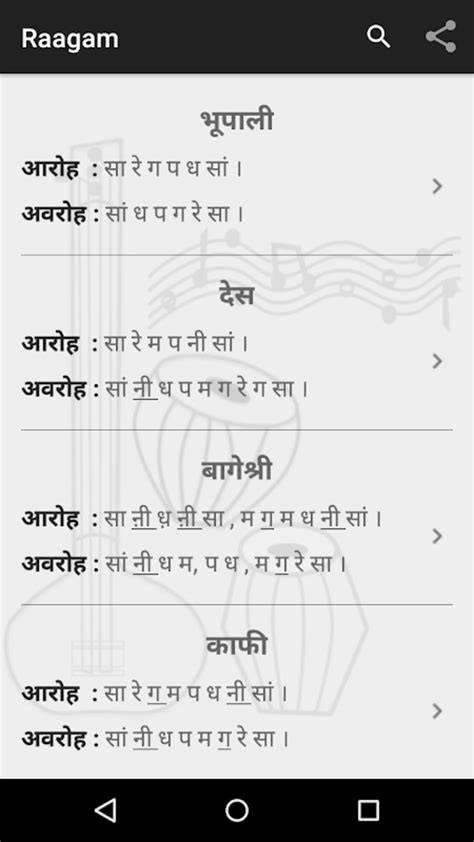 Raagam
भूपाली
आरोह : सा रे ग प ध सां ।
अवरोह : सां ध प ग रे सा ।
देस
आरोह : सा रे म प नी सां ।
अवरोह : सां नी॒ ध प म ग रे ग सा ।
बागेश्री
आरोह : सा ऩी॒ ध़ ऩी॒ सा , म ग॒ म ध नी॒ सां ।
अवरोह : सां नी॒ ध म, प ध , म ग॒ रे सा ।
काफी
आरोह : सा रे ग॒ म प ध नी॒ सां ।
अवरोह : सां नी॒ ध प म ग॒ रे सा ।